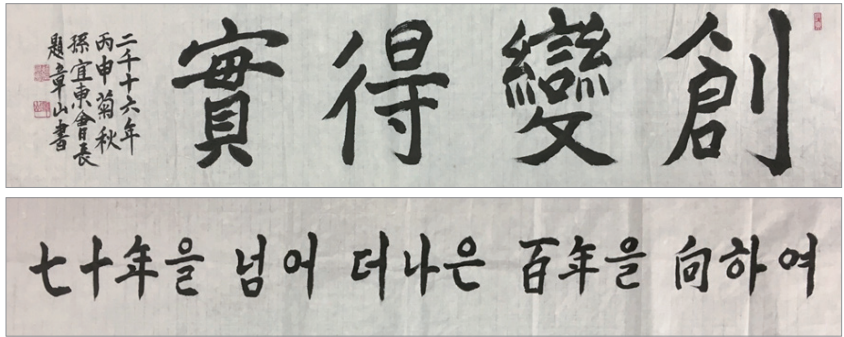 創變得實
二千十六年
丙申菊秋
孫宜東會長
題章山書
七十年을 넘어 더나은 百年을 向하여